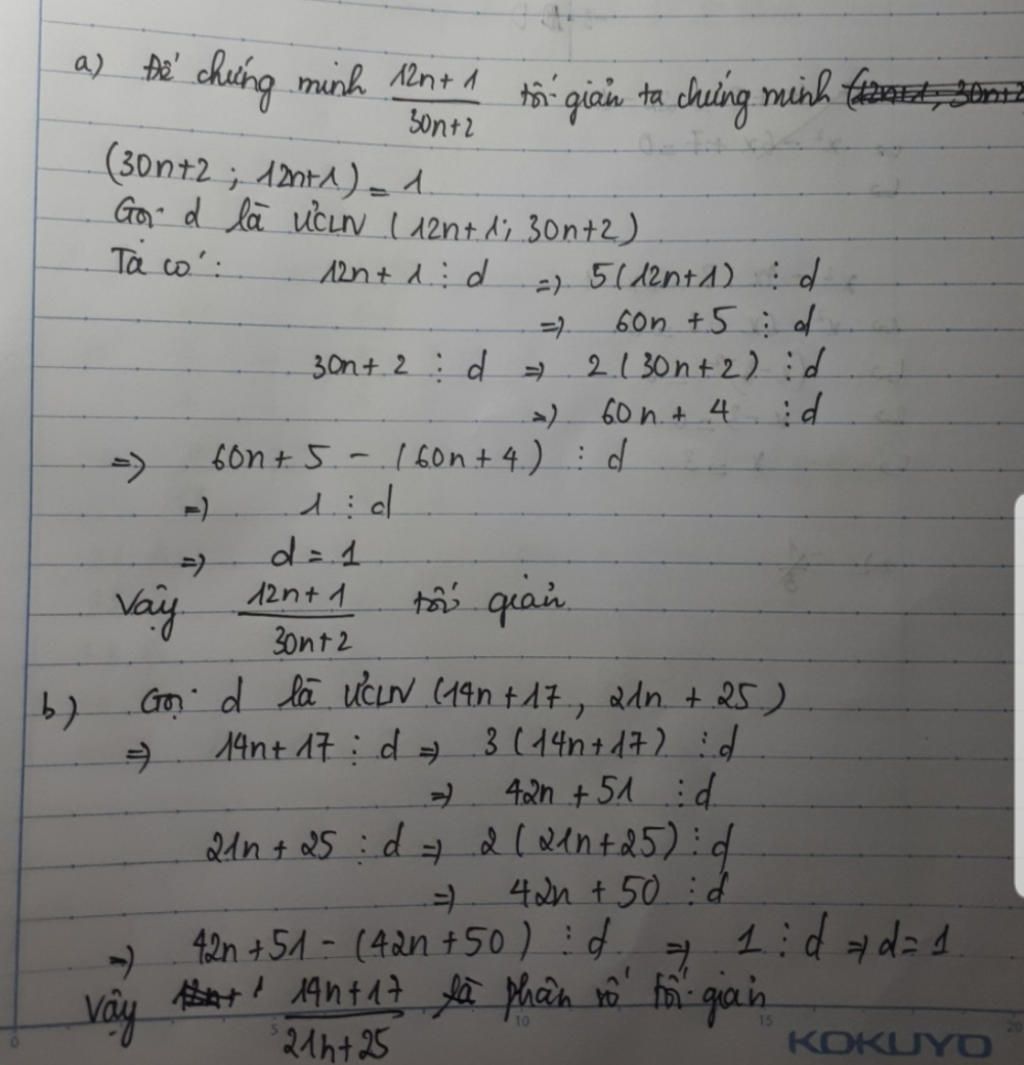 a) Để chứng minh \frac{12n+1}{30n+2} tối giản ta chứng minh (12n+1; 30n+2
(30n+2 ; 12n+1) = 1
Gọi d là ƯCLN (12n+1; 30n+2)
Ta có: 12n+1 ⋮ d => 5(12n+1) ⋮ d
=> 60n+5 ⋮ d
30n+2 ⋮ d => 2(30n+2) ⋮ d
=> 60n+4 ⋮ d
=> 60n+5 - (60n+4) ⋮ d
=> 1 ⋮ d
=> d = 1
Vậy \frac{12n+1}{30n+2} tối giản
b) Gọi d là ƯCLN (14n+17, 21n+25)
=> 14n+17 ⋮ d => 3(14n+17) ⋮ d
=> 42n+51 ⋮ d
21n+25 ⋮ d => 2(21n+25) ⋮ d
=> 42n+50 ⋮ d
=> 42n+51 - (42n+50) ⋮ d => 1 ⋮ d => d=1
Vậy \frac{14n+17}{21n+25} là phân số tối giản
0 5 10 15 20
KOKUYO